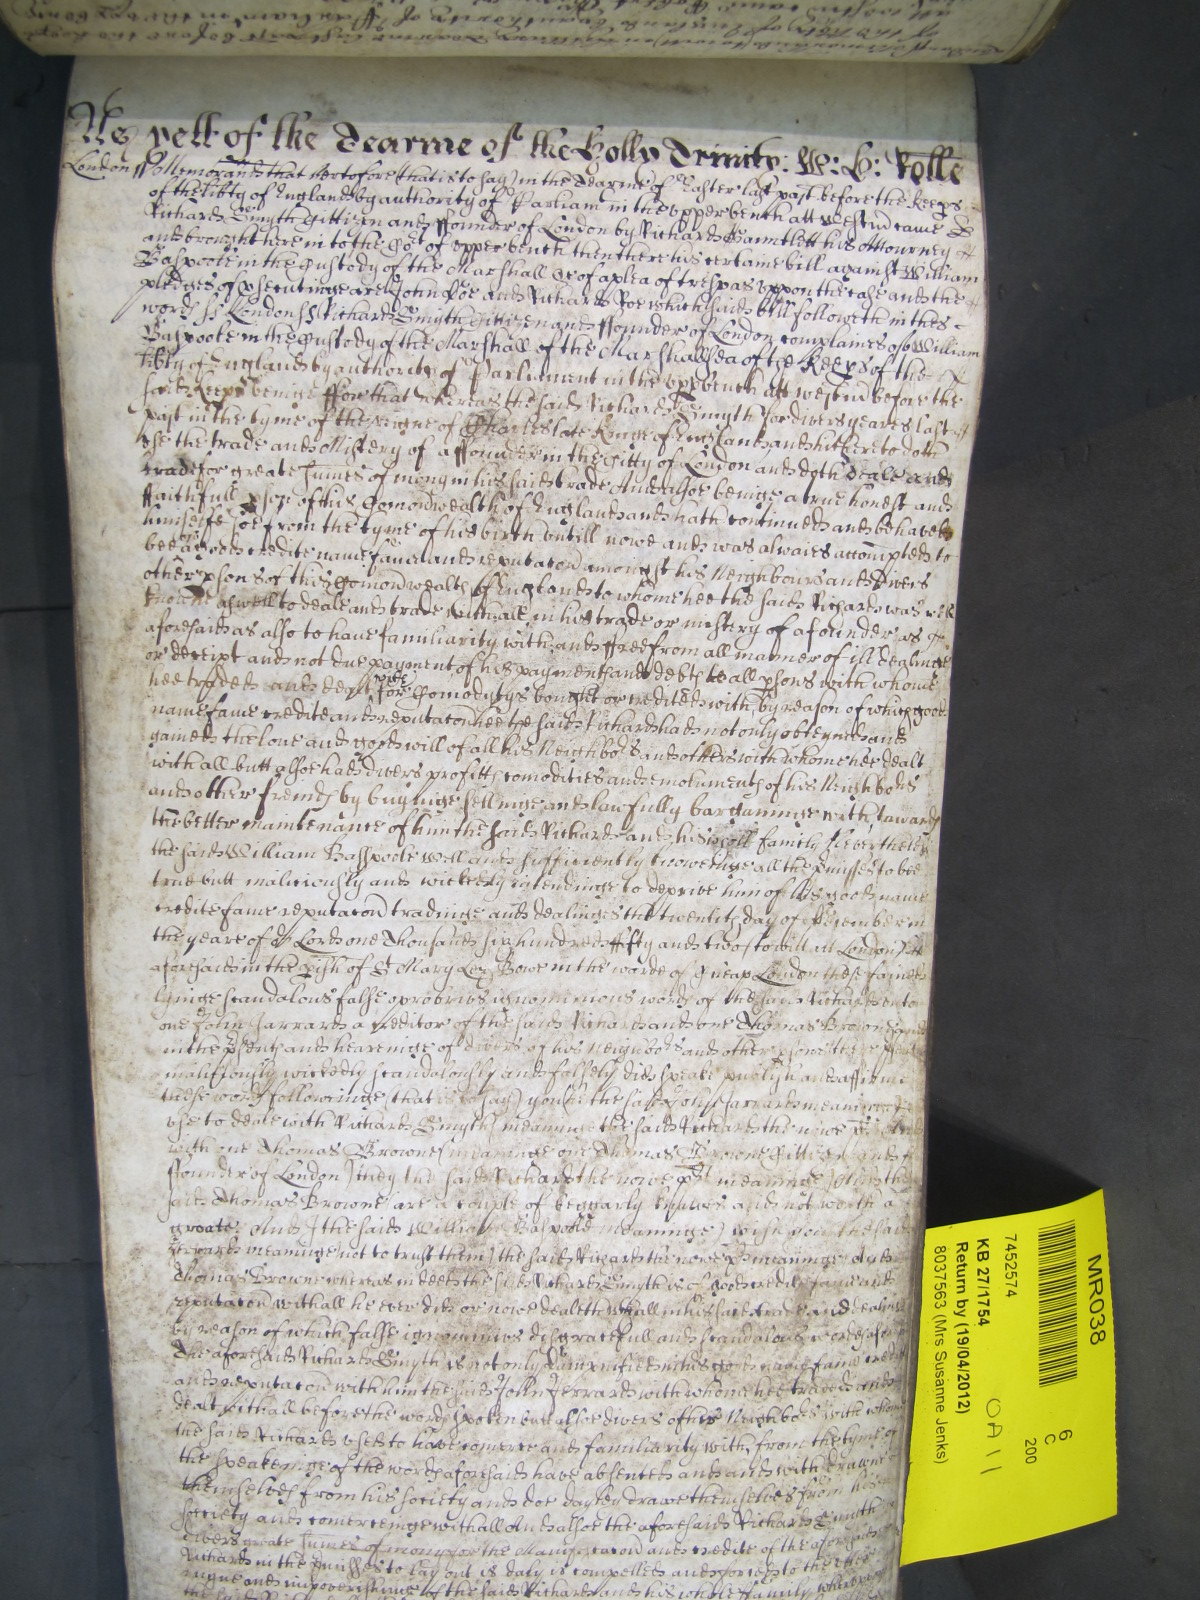 As yett of the Tearme of the holly Trinity: W: H: Rolle
London ss Memorand that heretofore that is to say in the Tearme of Easter last past before the Keeps
of the libty of England by authority of Parliam in the upper bench att Westm came
Richard Smyth Cittizen and ffounder of London by Richard Gauntlett his Attourney
and brought here in to the Cort of upper bench then there his certaine bill against William
Baspoole in the Custody of the Marshall &c of a plea of trespas uppon the case and the
pledges of psecutinge are John Doe and Richard Roe which said bill followeth in thes
words ss London ss Richard Smyth Cittizen and ffounder of London complaines of William
Baspoole in the Custody of the Marshall of the Marshallsea of the Keeps of the
libty of England by authority of Parliament in the upp bench att Westm before the
said Keeps beinge ffor that whereas the said Richard Smyth for divers yeares last
past in the tyme of the reigne of Charles late Kinge of England and hitherto doth
use the trade and Mistery of a ffounder in the Citty of London and doth deale and
trade for greate sumes of mony in his said trade And alsoe beinge a true honest and
ffaithfull pson of this Comonwealth of England and hath continued and behaved
himselfe soe from the tyme of his birth untill nowe and was alwaies accompted to
bee of good credite name fame and reputacon amongst his Neighbours and divers
other psons of this Comonwealth of England to whome hee the said Richard was well
knowne aswell to deale and trade withall in his trade or mistery of a founder as
aforesaid as also to have familiarity with and ffree from all manner of ill dealinge
or deceipt and not due payment of his payments and debts to all psons with whome
hee traded and dealt for Comodytys bought or credited with by reason of which good
name fame credite and reputacon hee the said Richard had not only obteyned and
gained the love and good will of all his Neighbors and others with whome hee dealt
withall butt alsoe had divers profitts comodities and emoluments of his Neighbors
and other freinds by buyinge sellinge and lawfully bargaininge with towards
the better maintenance of him the said Richard and his whole family Neverthelesse
the said William Baspoole well and sufficiently knoweinge all the pmisses to bee
true butt maliciously and wickedly intendinge to deprive him of his good name
credite fame reputacon tradinge and dealinges the twentith day of December in
the yeare of or Lord one Thousand six hundred ffifty and two to witt att London
aforesaid in the pish of St Mary Le Bowe in the warde of Cheap London thes fained
lyinge scandalous false oprobrius ignominious words of the said Richard unto
one John Jarrard a creditor of the said Richard and one Thomas Browne
in the psents and hearinge of divers of his Neighbors and other psons
maliciously wickedly scandalously and falsely did speake publish and affirme
these words followinge that is to say you the said John Jarrard meaninge
use to deale with Richard Smyth meaninge the said Richard the nowe
with one Thomas Browne meaninge one Thomas Browne Cittizen and
ffounder of London they the said Richard the nowe pt meaninge And the
said Thomas Browne are a couple of beggarly and not worth a
groate And I the said William Baspoole meaninge wish you the said
Jerrard meaninge not to trust them the said Richard the nowe pt meaninge and
Thomas Browne whereas indeed the said Richard Smyth is of good credite fame and
reputacon withall he ever did or nowe dealeth withall in his said trade and dealings
by reason of which false ignominius disgracefull and scandalous words
the aforesaid Richard Smyth is not only damnified in his good name fame credite
and reputacon with him the said John Jerrard with whome hee traded and
dealt withall before the words spoken butt alsoe divers other Neighbors with whome
the said Richard used to have comerce and familiarity with from the tyme of
the speakeinge of the words aforesaid have absented and withdrawne
themselves from his society and doe dayley drawe themselves from his
society and comerceinge withall And alsoe the aforesaid Richard Smyth
divers greate sumes of mony for the Manifestacon and credite of the aforesaid
Richard in the pmisses to lay out is daly compelled and forced to the
ruine and impoverishinge of the said Richard and his whole family
MR038
6
C
200
7452574
KB 27/1754
Return by (19/04/2012)
8037563 (Mrs Susanne Jenks)